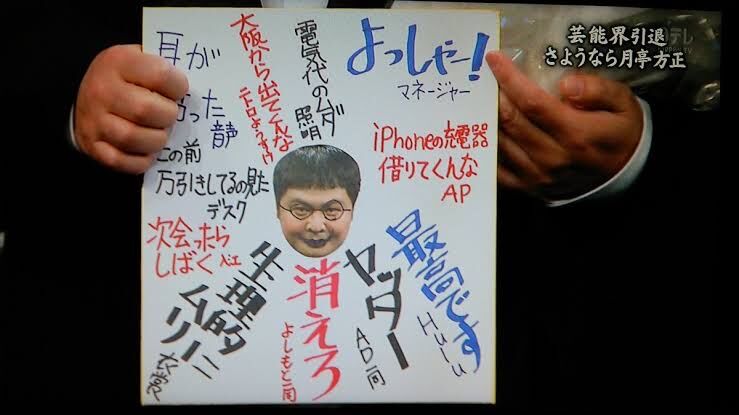 芸能界引退
さようなら月亭方正
よっしゃー!
マネージャー
電気代のムダ
照明
大阪から出てくんな
耳が
った
音声
iPhoneの充電器
借りてくんな
AP
この前
万引きしてるの見た
デスク
次会ったら
しばく
生理的
にムリ
衣裳
消えろ
よしもと一同
ヤッター
AD一同
最高です
Hulu